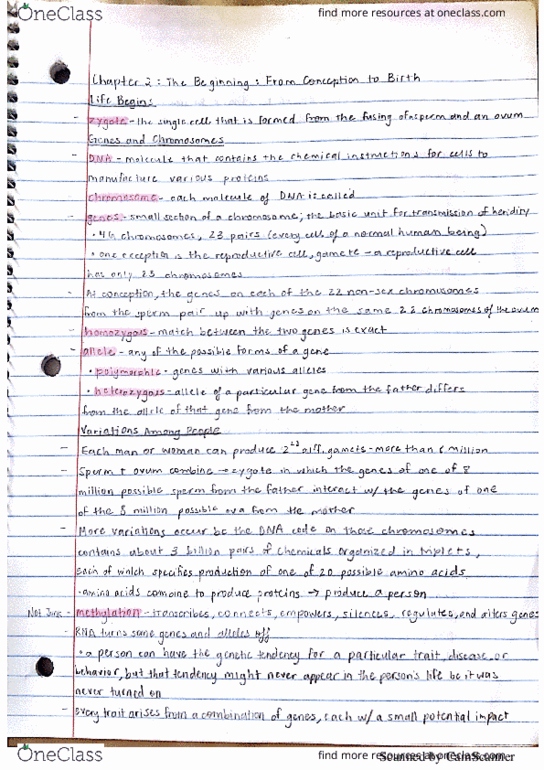 OneClass
find more resources at oneclass.com
Chapter 2 : The Beginning : From Conception to Birth
Life Begins
- zygote - the single cell that is formed from the fusing of a sperm and an ovum
Genes and Chromosomes
- DNA - molecule that contains the chemical instructions for cells to
manufacture various proteins
chromosome - each molecule of DNA is called
- genes - small section of a chromosome; the basic unit for transmission of heridity
• 46 chromosomes, 23 pairs (every cell of a normal human being)
• one exception is the reproductive cell, gamete - a reproductive cell
has only 23 chromosomes
- At conception, the genes on each of the 22 non-sex chromosomes
from the sperm pair up with genes on the same 22 chromosomes of the ovum
- homozygous - match between the two genes is exact
- allele - any of the possible forms of a gene
• polymorphic - genes with various alleles
• heterozygous - allele of a particular gene from the father differs
from the allele of that gene from the mother
Variations Among People
- Each man or woman can produce 2²³ diff. gametes - more than 8 million
- Sperm + ovum combine → zygote in which the genes of one of 8
million possible sperm from the father interact w/ the genes of one
of the 8 million possible ova from the mother
- More variations occur bc the DNA code on those chromosomes
contains about 3 billion pairs of chemicals organized in triplets,
each of which specifies production of one of 20 possible amino acids
• amino acids combine to produce proteins → produce a person
- methylation - transcribes, connects, empowers, silences, regulates, and alters genes
- RNA turns some genes and alleles off
• a person can have the genetic tendency for a particular trait, disease, or
behavior, but that tendency might never appear in the person's life bc it was
never turned on
- every trait arises from a combination of genes, each w/ a small potential impact
OneClass
find more resources at oneclass.com
Scanned by CamScanner